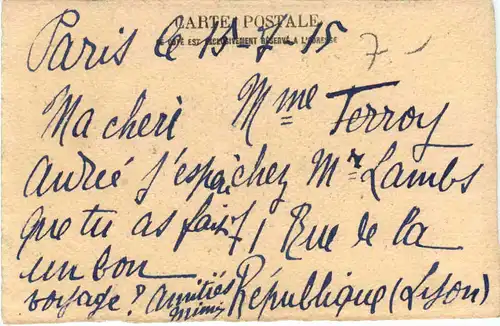 CARTE POSTALE
CE COTÉ EST EXCLUSIVEMENT RÉSERVÉ A L'ADRESSE
Paris le 15-7-15
7-
Ma cheri
Andrée J'espère
que tu as fait
un bon
voyage? Amitiés
Mimi
Mme Ferroy
chez Mr Lambs
71 Rue de la
République (Lyon)